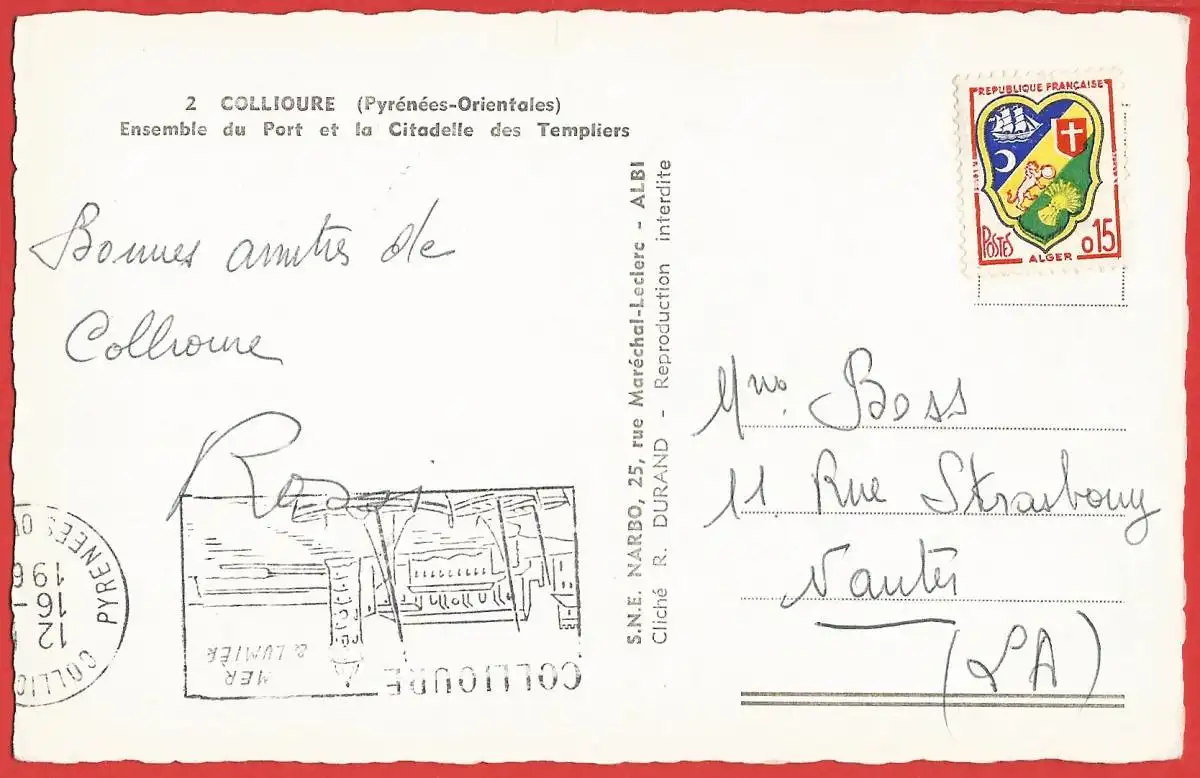 2 COLLIOURE (Pyrénées-Orientales)
Ensemble du Port et la Citadelle des Templiers
Bonnes amitiés de
Collioure
S.N.E. NARBO, 25, rue Maréchal-Leclerc - ALBI
Cliché R. DURAND - Reproduction interdite
REPUBLIQUE FRANÇAISE
POSTES
0,15
ALGER
Boss
11 Rue Strasbourg
Nantes
(LA)
COLLIOURE
MER
& LUMIÈR
PYRENEES O
COLLIO
12
16
196